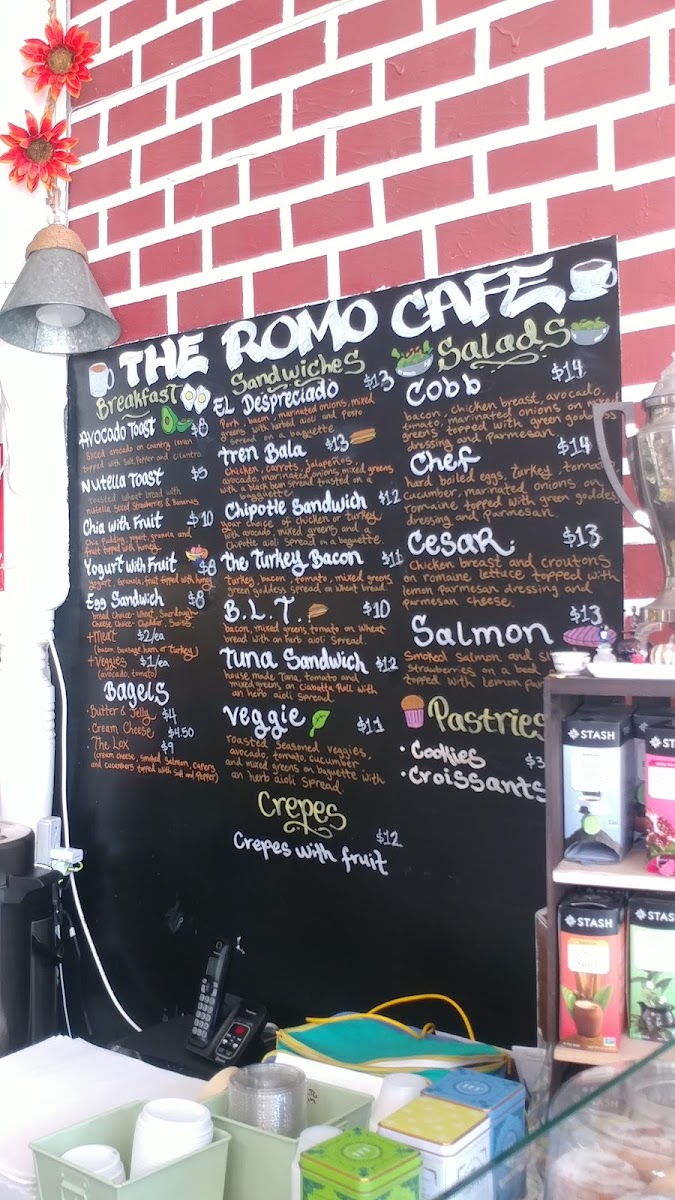 THE ROMO CAFE
Breakfast
Avocado Toast $8
Sliced avocado on country levain
topped with Salt, Pepper and cilantro
Nutella Toast $5
Toasted wheat bread with
nutella, sliced Strawberries & Bananas
Chia with Fruit $10
Chia pudding, yogurt, granola and
fruit topped with honey
Yogurt with Fruit $8
yogurt, Granola, fruit topped with honey
Egg Sandwich $8
bread choice- wheat, Sourdough
Cheese choice- Cheddar, Swiss
+Meat $2/ea
(bacon, Sausage, ham, or turkey)
+Veggies $1/ea
(avocado, tomato)
Bagels
·Butter & Jelly $4
·Cream Cheese $4.50
·The Lox $9
(cream cheese, smoked salmon, capers
and cucumbers topped with Salt and Pepper)
Sandwiches
EL Despreciado $13
Pork, bacon, marinated onions, mixed
greens with herbed aioli and pesto
spread on a baguette
Tren Bala $13
Chicken, carrots, jalapeños,
avocado, marinated onions, mixed greens
with a black bean spread toasted on a
baguette
Chipotle Sandwich $12
Your choice of chicken or turkey
with avocado, mixed greens and a
Chipotle aioli Spread on a baguette
the Turkey Bacon $11
turkey, bacon, tomato, mixed greens
green goddess spread on wheat bread
B.L.T. $10
bacon, mixed greens, tomato on wheat
bread with an herb aioli spread.
Tuna Sandwich $12
house made Tuna, tomato and
mixed greens on Ciabatta Roll with
an herb aioli Spread
veggie $11
roasted seasoned veggies,
avocado, tomato, cucumber
and mixed greens on baguette with
an herb aioli spread.
Crepes
$12
Crepes with fruit
Salads
Cobb $14
bacon, chicken breast, avocado,
tomato, marinated onions on mixed
greens topped with green goddess
dressing and parmesan
Chef $14
hard boiled eggs, turkey, tomato
cucumber, marinated onions on
romaine topped with green goddess
dressing and parmesan.
Cesar $13
Chicken breast and croutons
on romaine lettuce topped with
lemon parmesan dressing and
parmesan cheese.
Salmon $13
Smoked Salmon and
Strawberries on a bed
topped with Lemon
Pastries
·Cookies $3
·Croissants
STASH
STASH
STASH
STASH